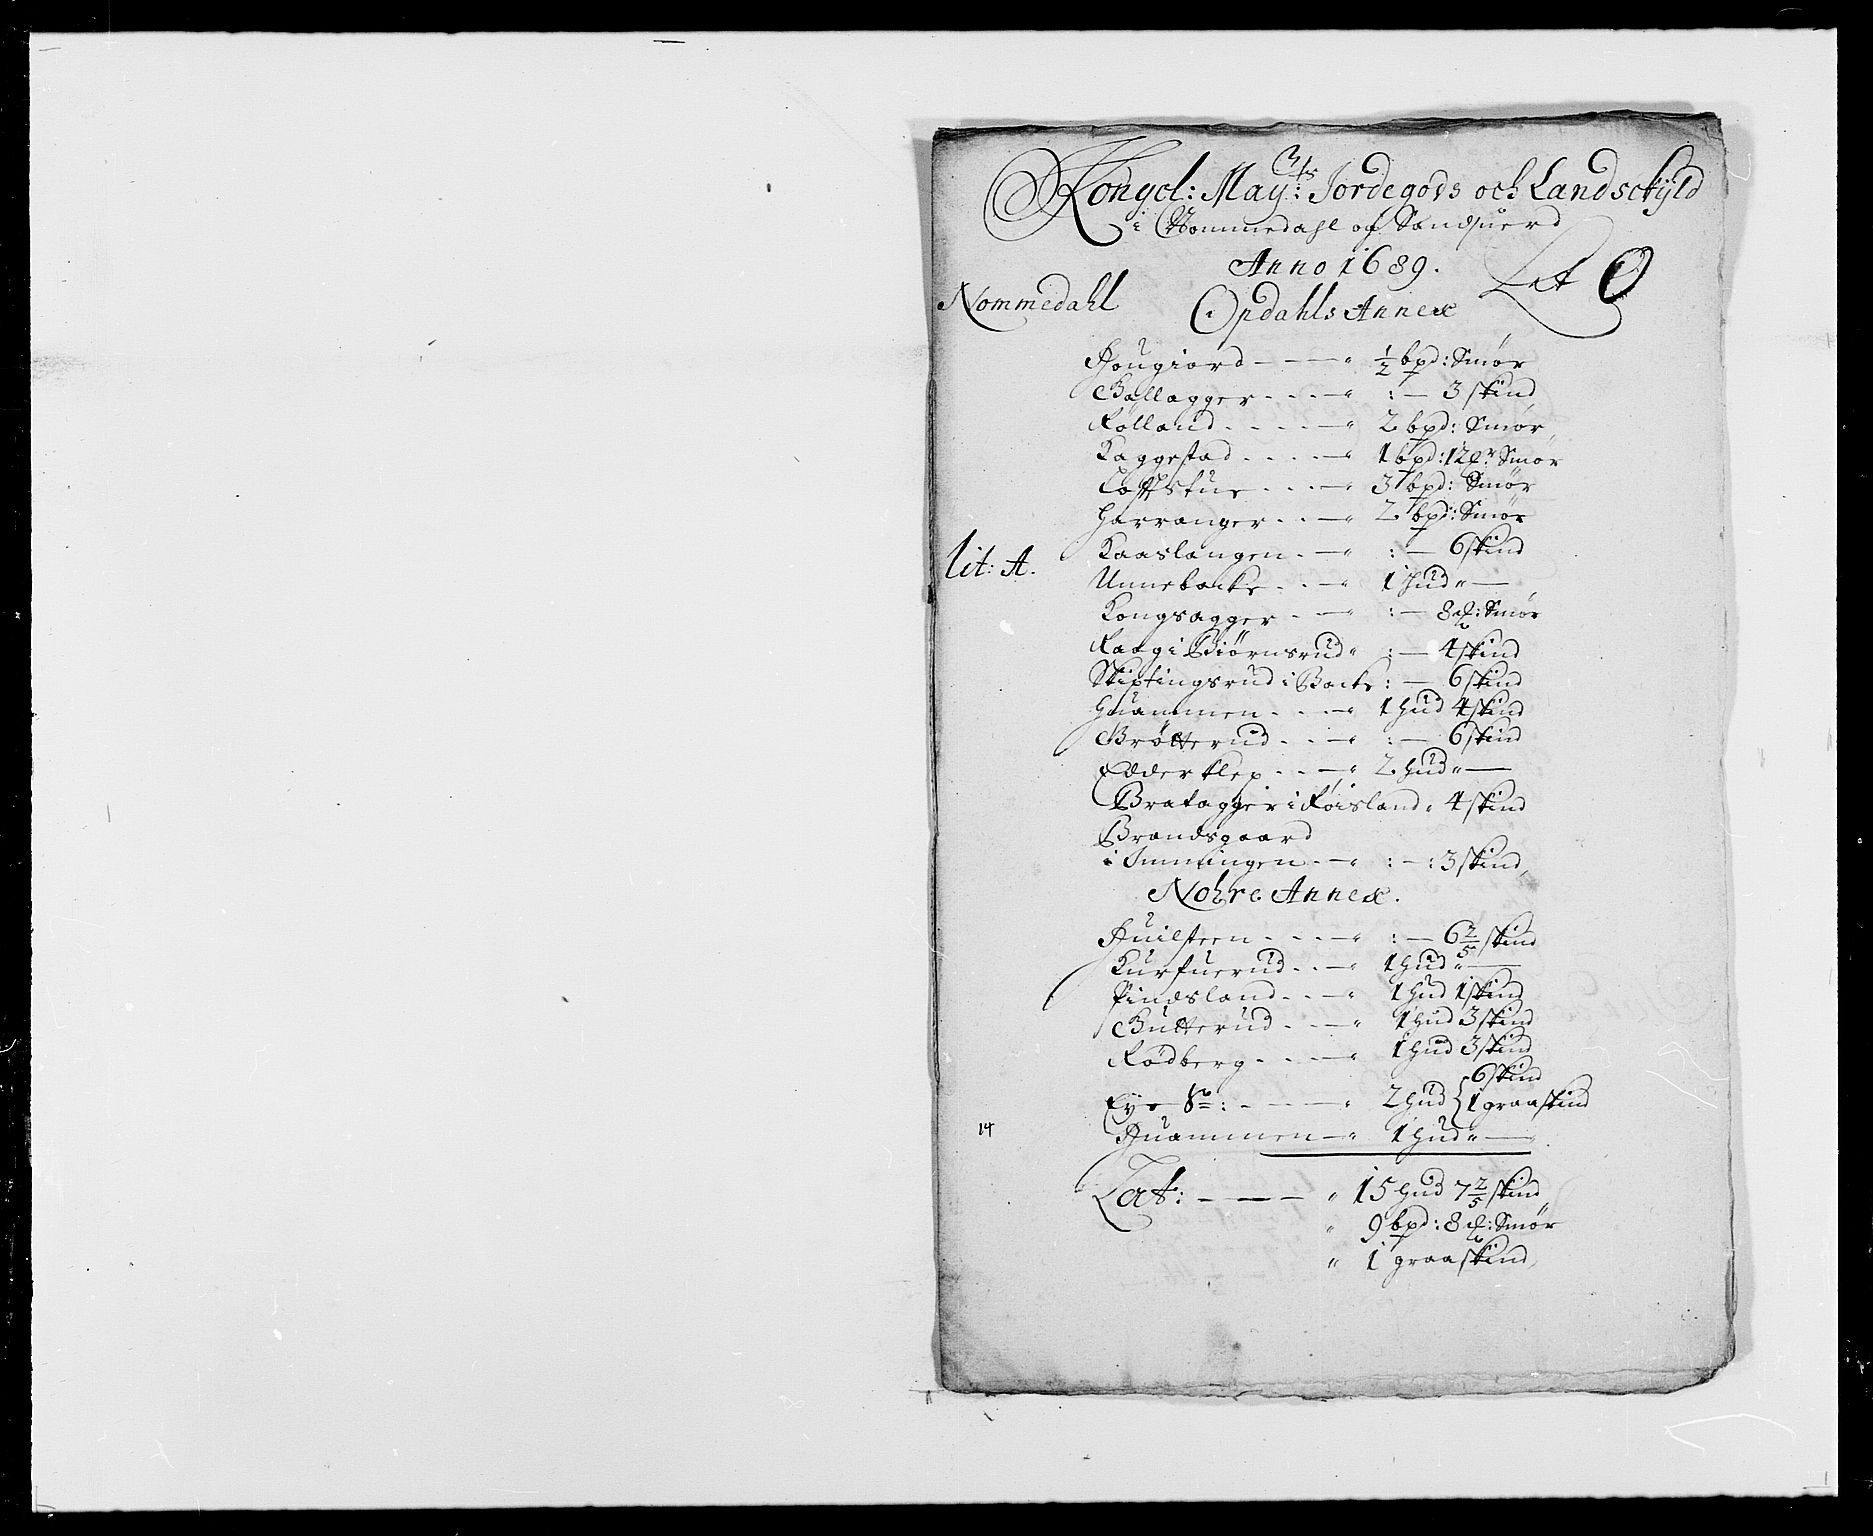 Kongel: May:ts Jordegods och Landschyld
i Nommedahl og Sandsuerd
Anno 1689.
Lit O
Nommedahl
Opdahls Annex
Hougiord - - - " ½ bpd: Smør
Ballagger - - - " : - 3 skind
Rolland - - - - " 2 bpd: Smør
Kaggestad - - - - " 1 bpd: 12 Smør
Loffstue - - - " 3 bpd: Smør
Harranger - - - " 2 bpd: Smør
lit: A.
Kaaslangen - - " : - 6 skind
Unnebache - - - " 1 hud " -
Kongsagger - - - " : - 8 Smør
Raag i Biørnsrud " : - 4 skind
Skiftingsrud i Bache : - 6 skind
Huammen - - - " 1 hud 4 skind
Brøtterud - - - " : - 6 skind
Edderklep - - - " 2 hud " -
Bratagger i Røisland " 4 skind
Brandsgaard
i Imningen - - " : - : 3 skind
Nohre Annex.
Huilsteen - - - - " : - 6 2/5 skind
Kurfuerud - - - " 1 hud " -
Findsland - - - " 1 hud 1 skind
Butterud - - - " 1 hud 3 skind
Rødberg - - - - " 1 hud 3 skind
6 skind
Eye - - - - " 2 hud { 1 graaskind
14
Huammen - " 1 hud " -
Lat: - - - " 15 hud 7 2/5 skind
" 9 bpd: 8 Smør
" 1 graaskind